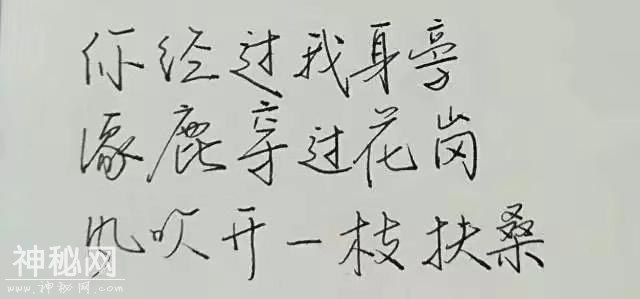 你经过我身旁
像鹿穿过花岗
风吹开一枝扶桑
神秘网
www.shenmiw.com